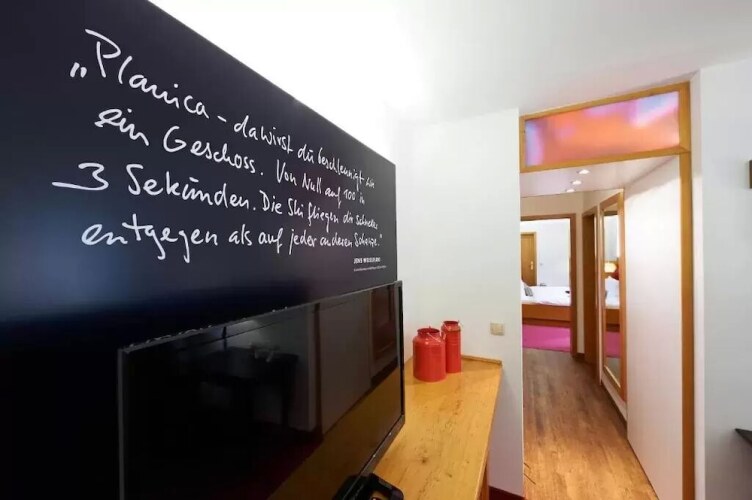 „Planica – da wirst du beschleunigt wie
ein Geschoss. Von Null auf 100 in
3 Sekunden. Die Ski fliegen dir schneller
entgegen als auf jeder anderen Schanze.“
JENS WEISSFLOG